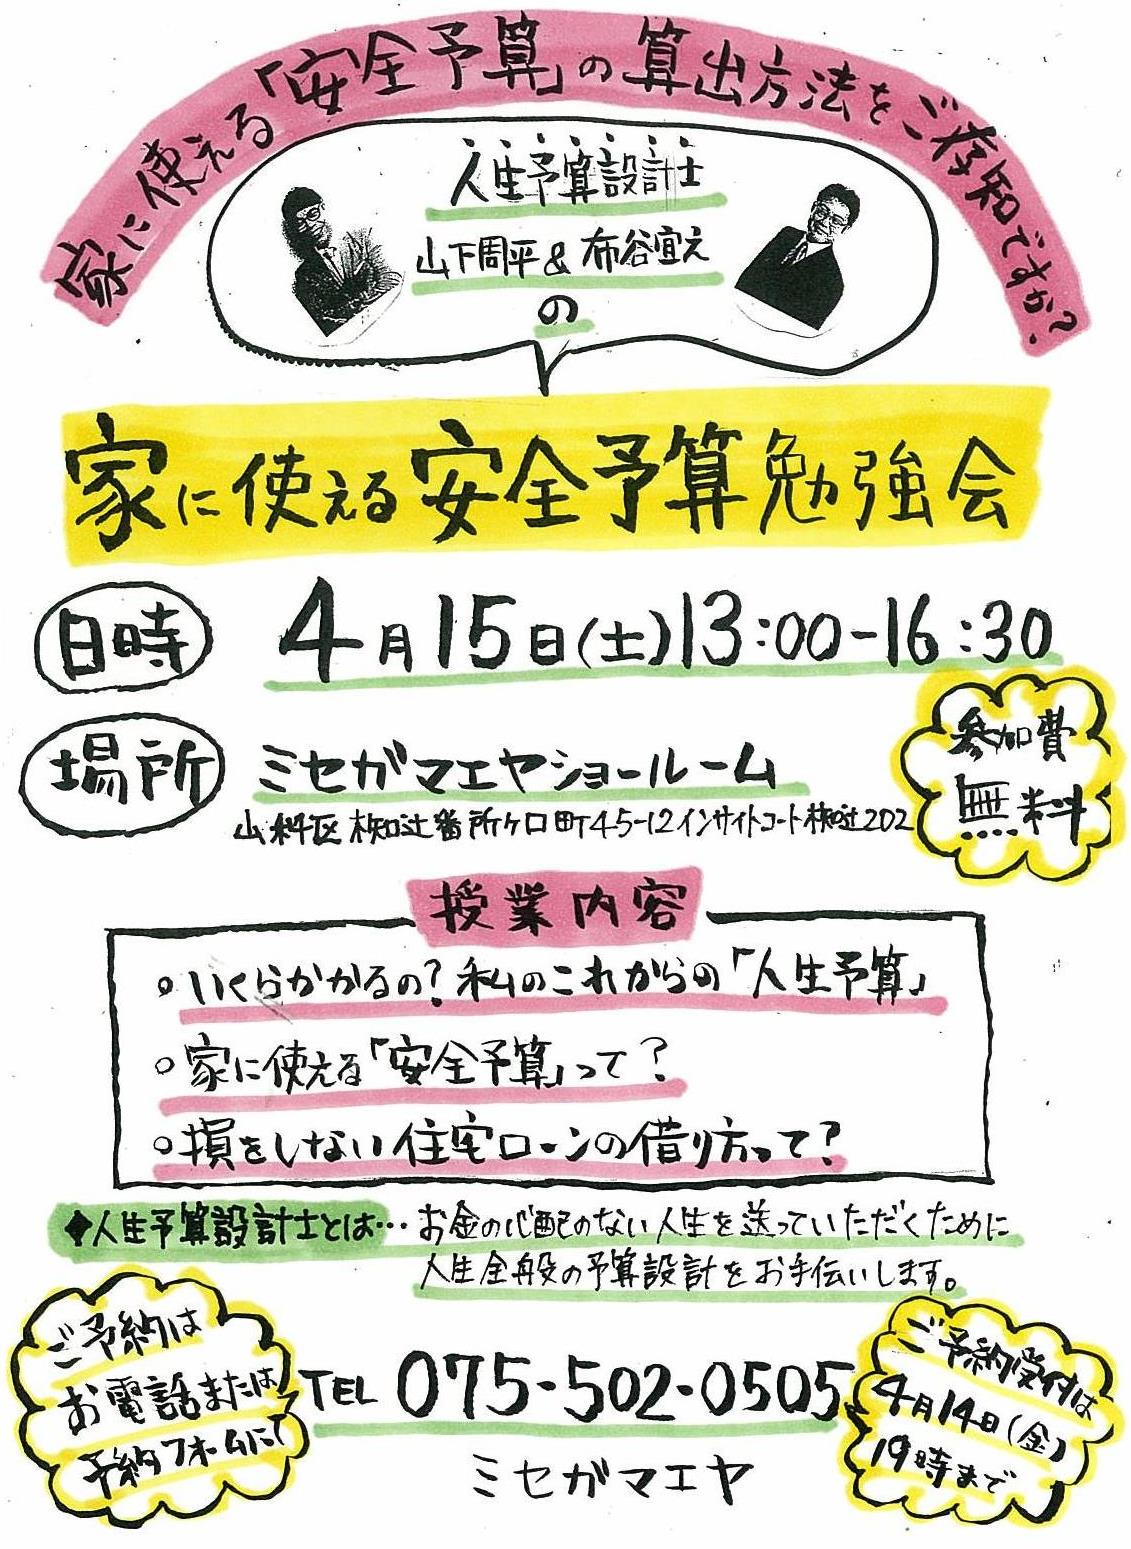 家に使える「安全予算」の算出方法をご存知ですか?
人生予算設計士
山下周平&布谷宜え
の
家に使える安全予算勉強会
日時 4月15日(土)13:00-16:30
場所 ミセガマエヤショールーム
山科区椥辻番所ヶ口町45-12インサイトコート椥辻202
参加費
無料
授業内容
○いくらかかるの?私のこれからの「人生予算」
○家に使える「安全予算」って?
○損をしない住宅ローンの借り方って?
◆人生予算設計士とは…お金の心配のない人生を送っていただくために
人生全般の予算設計をお手伝いします。
ご予約は
お電話または
予約フォームにて
TEL 075-502-0505
ミセガマエヤ
ご予約受付は
4月14日(金)
19時まで